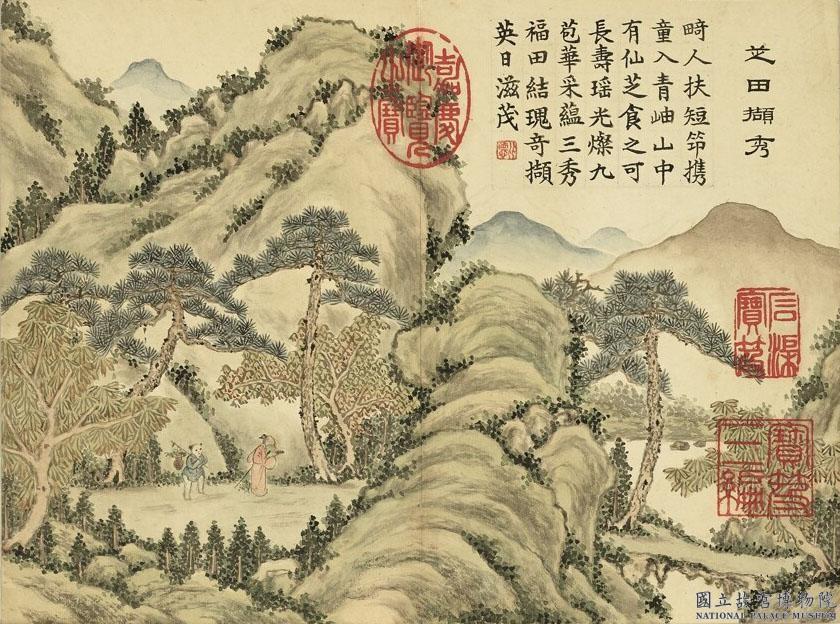 芝田擷秀
畸人扶短笻携
童入青岫山中
有仙芝食之可
長壽瑤光燦九
苞華采蘊三秀
福田結瑰奇擷
英日滋茂
嘉慶御覽之寶
石渠寶笈
寶笈三編
國立故宮博物院
NATIONAL PALACE MUSEUM